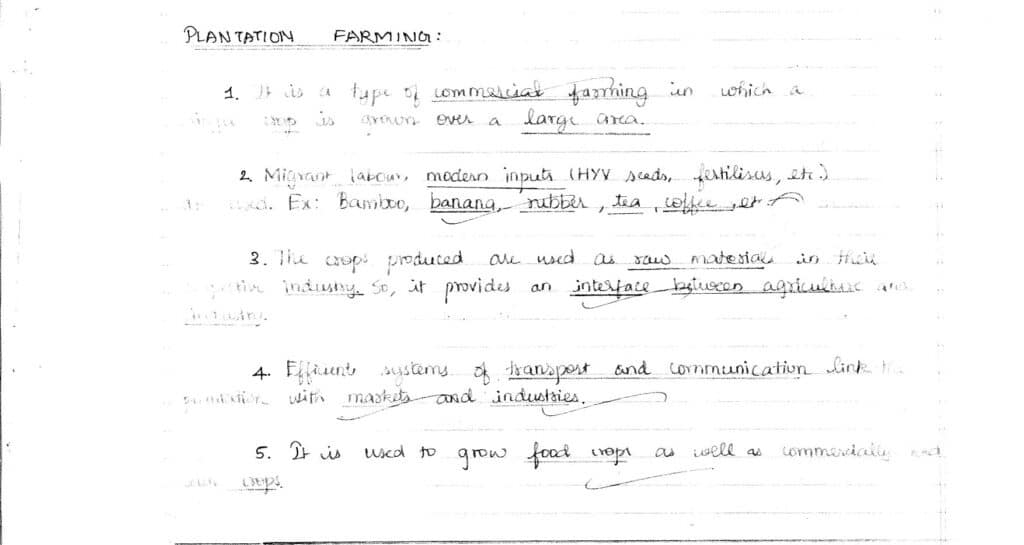 PLANTATION FARMING:
1. It is a type of commercial farming in which a
crop is grown over a large area.
2. Migrant labour, modern inputs (HYV seeds, fertilisers, etc.)
used. Ex: Bamboo, banana, rubber, tea, coffee, etc
3. The crops produced are used as raw materials in their
industry. So, it provides an interface between agriculture and
industry.
4. Efficient systems of transport and communication link the
plantation with markets and industries.
5. It is used to grow food crops as well as commercially and
crops.